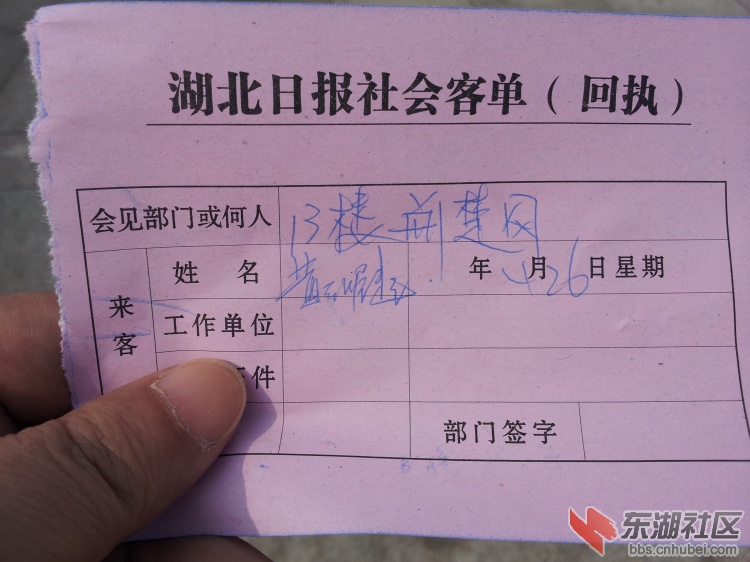 湖北日报社会客单（回执）
会见部门或何人 13楼 荆楚网
来客 姓名 年4月26日星期
工作单位
件
部门签字
东湖社区
bbs.cnhubei.com